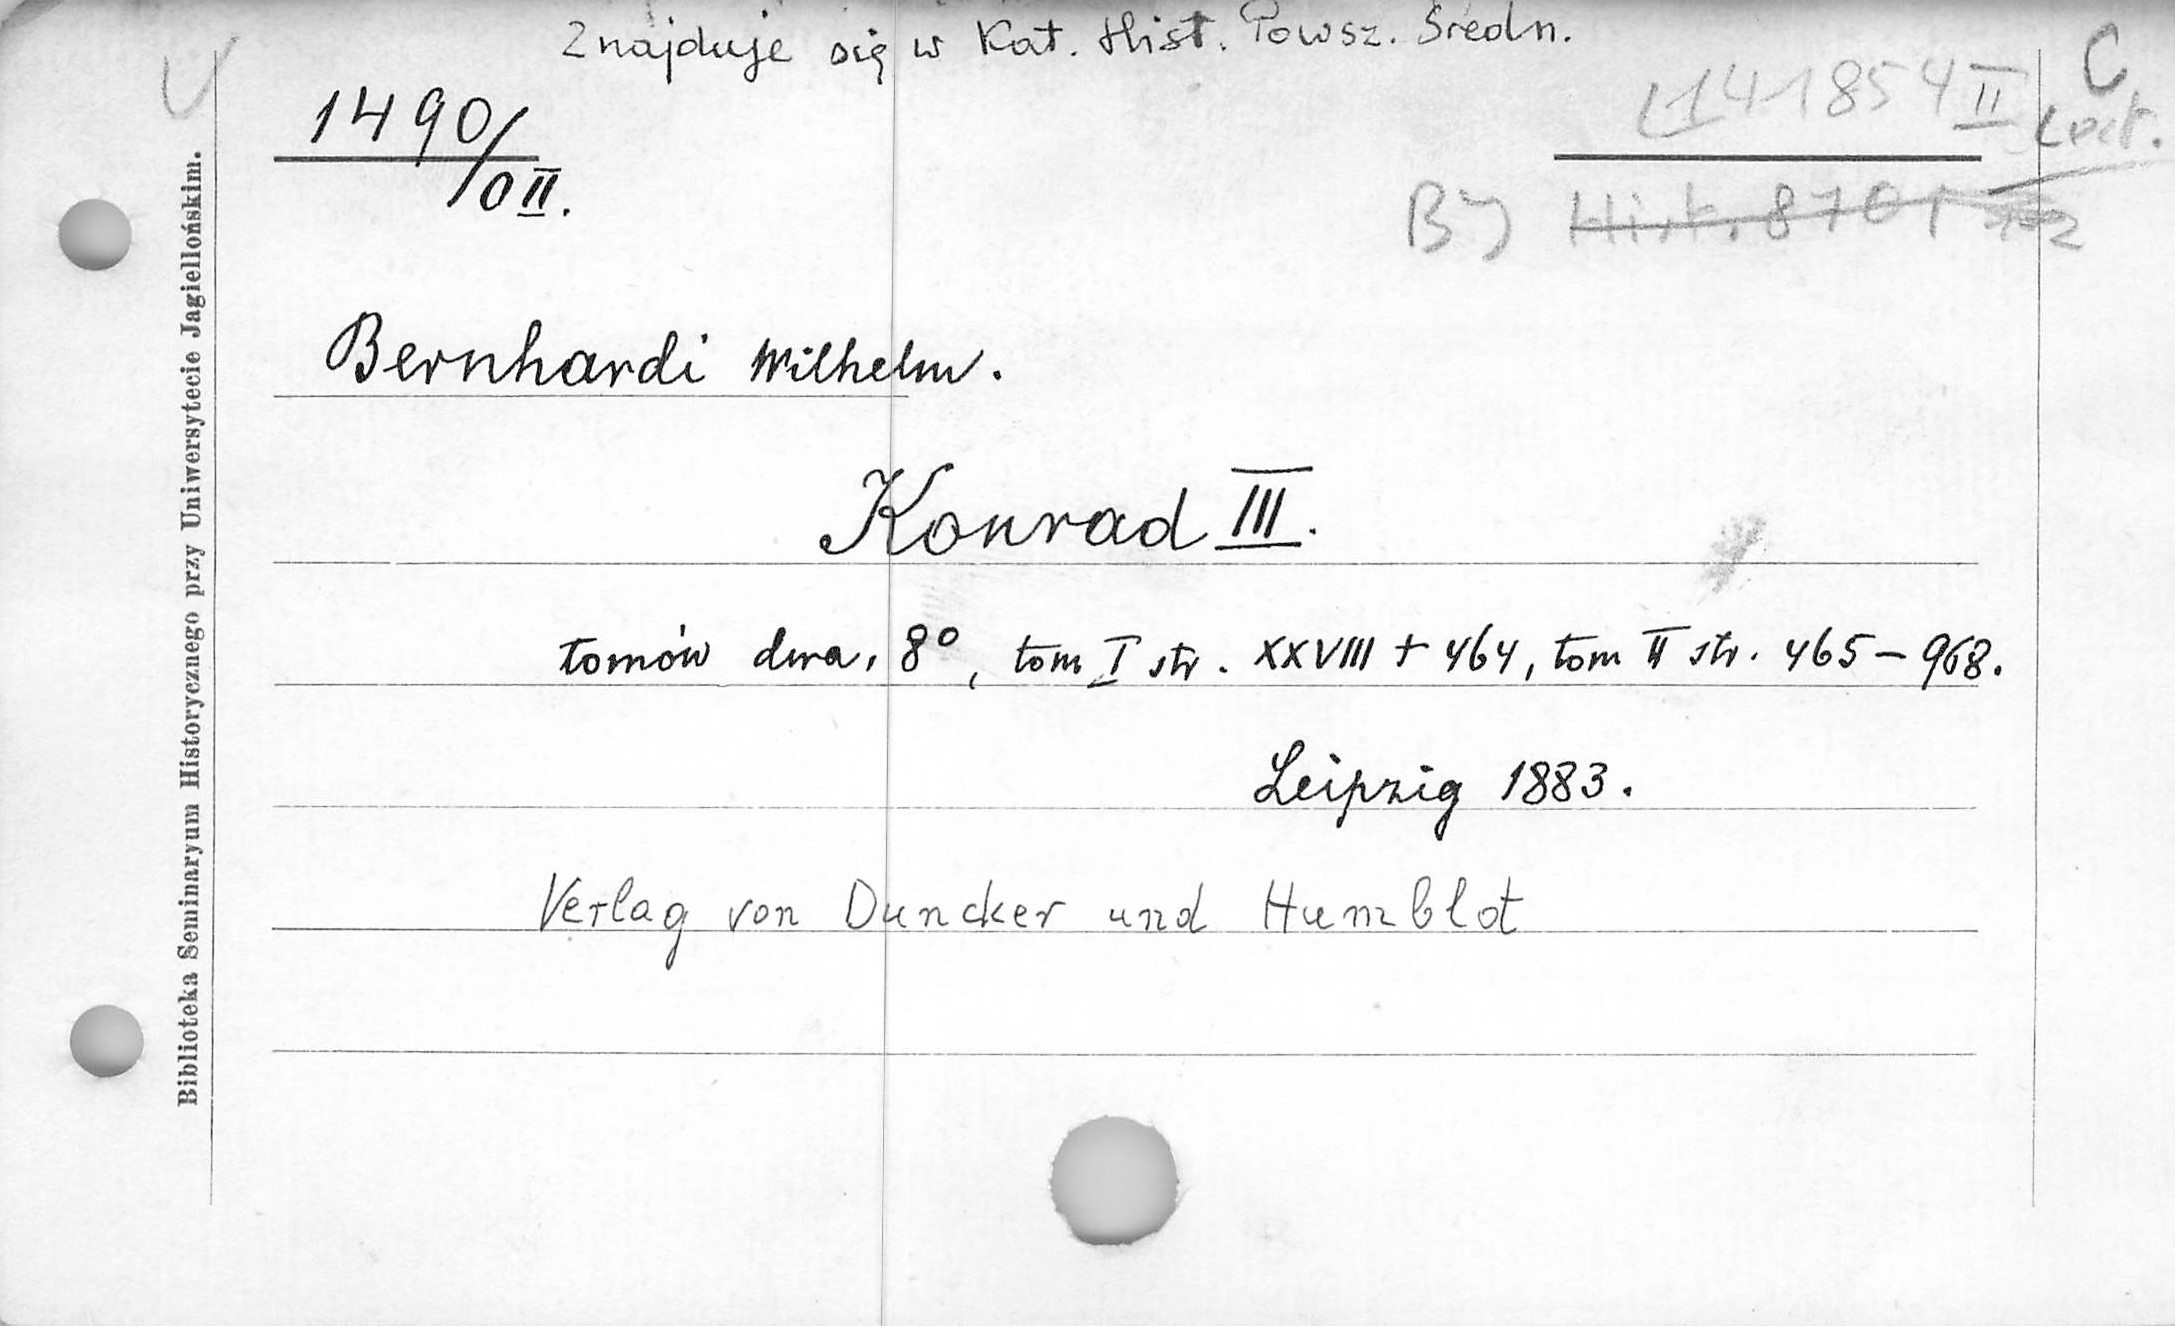 Znajduje się w Kat. Hist. Powsz. Średn.
C
1490/0II.
141854 II
Lect.
BJ Hist. 8701
Bernhardi Wilhelm.
Konrad III.
tomów dwa, 8°, tom I str. XXVIII + 464, tom II str. 465 – 968.
Leipzig 1883.
Verlag von Duncker und Humblot
Biblioteka Seminaryum Historycznego przy Uniwersytecie Jagiellońskim.